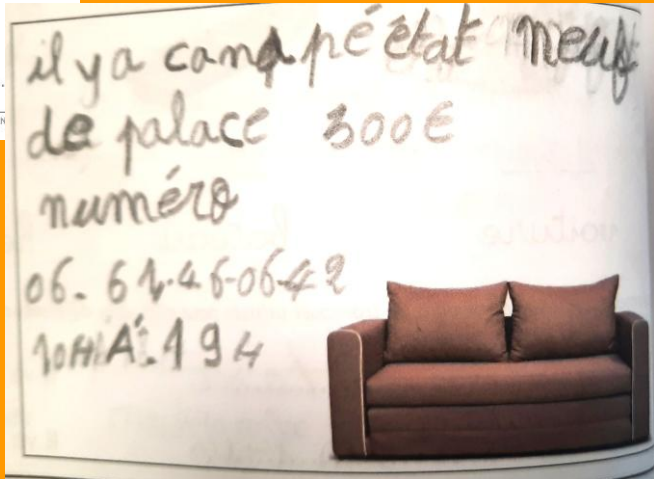 il y a canapé état neuf
de palace 300€
numéro
06. 61.46-06-42
10H À. 19H